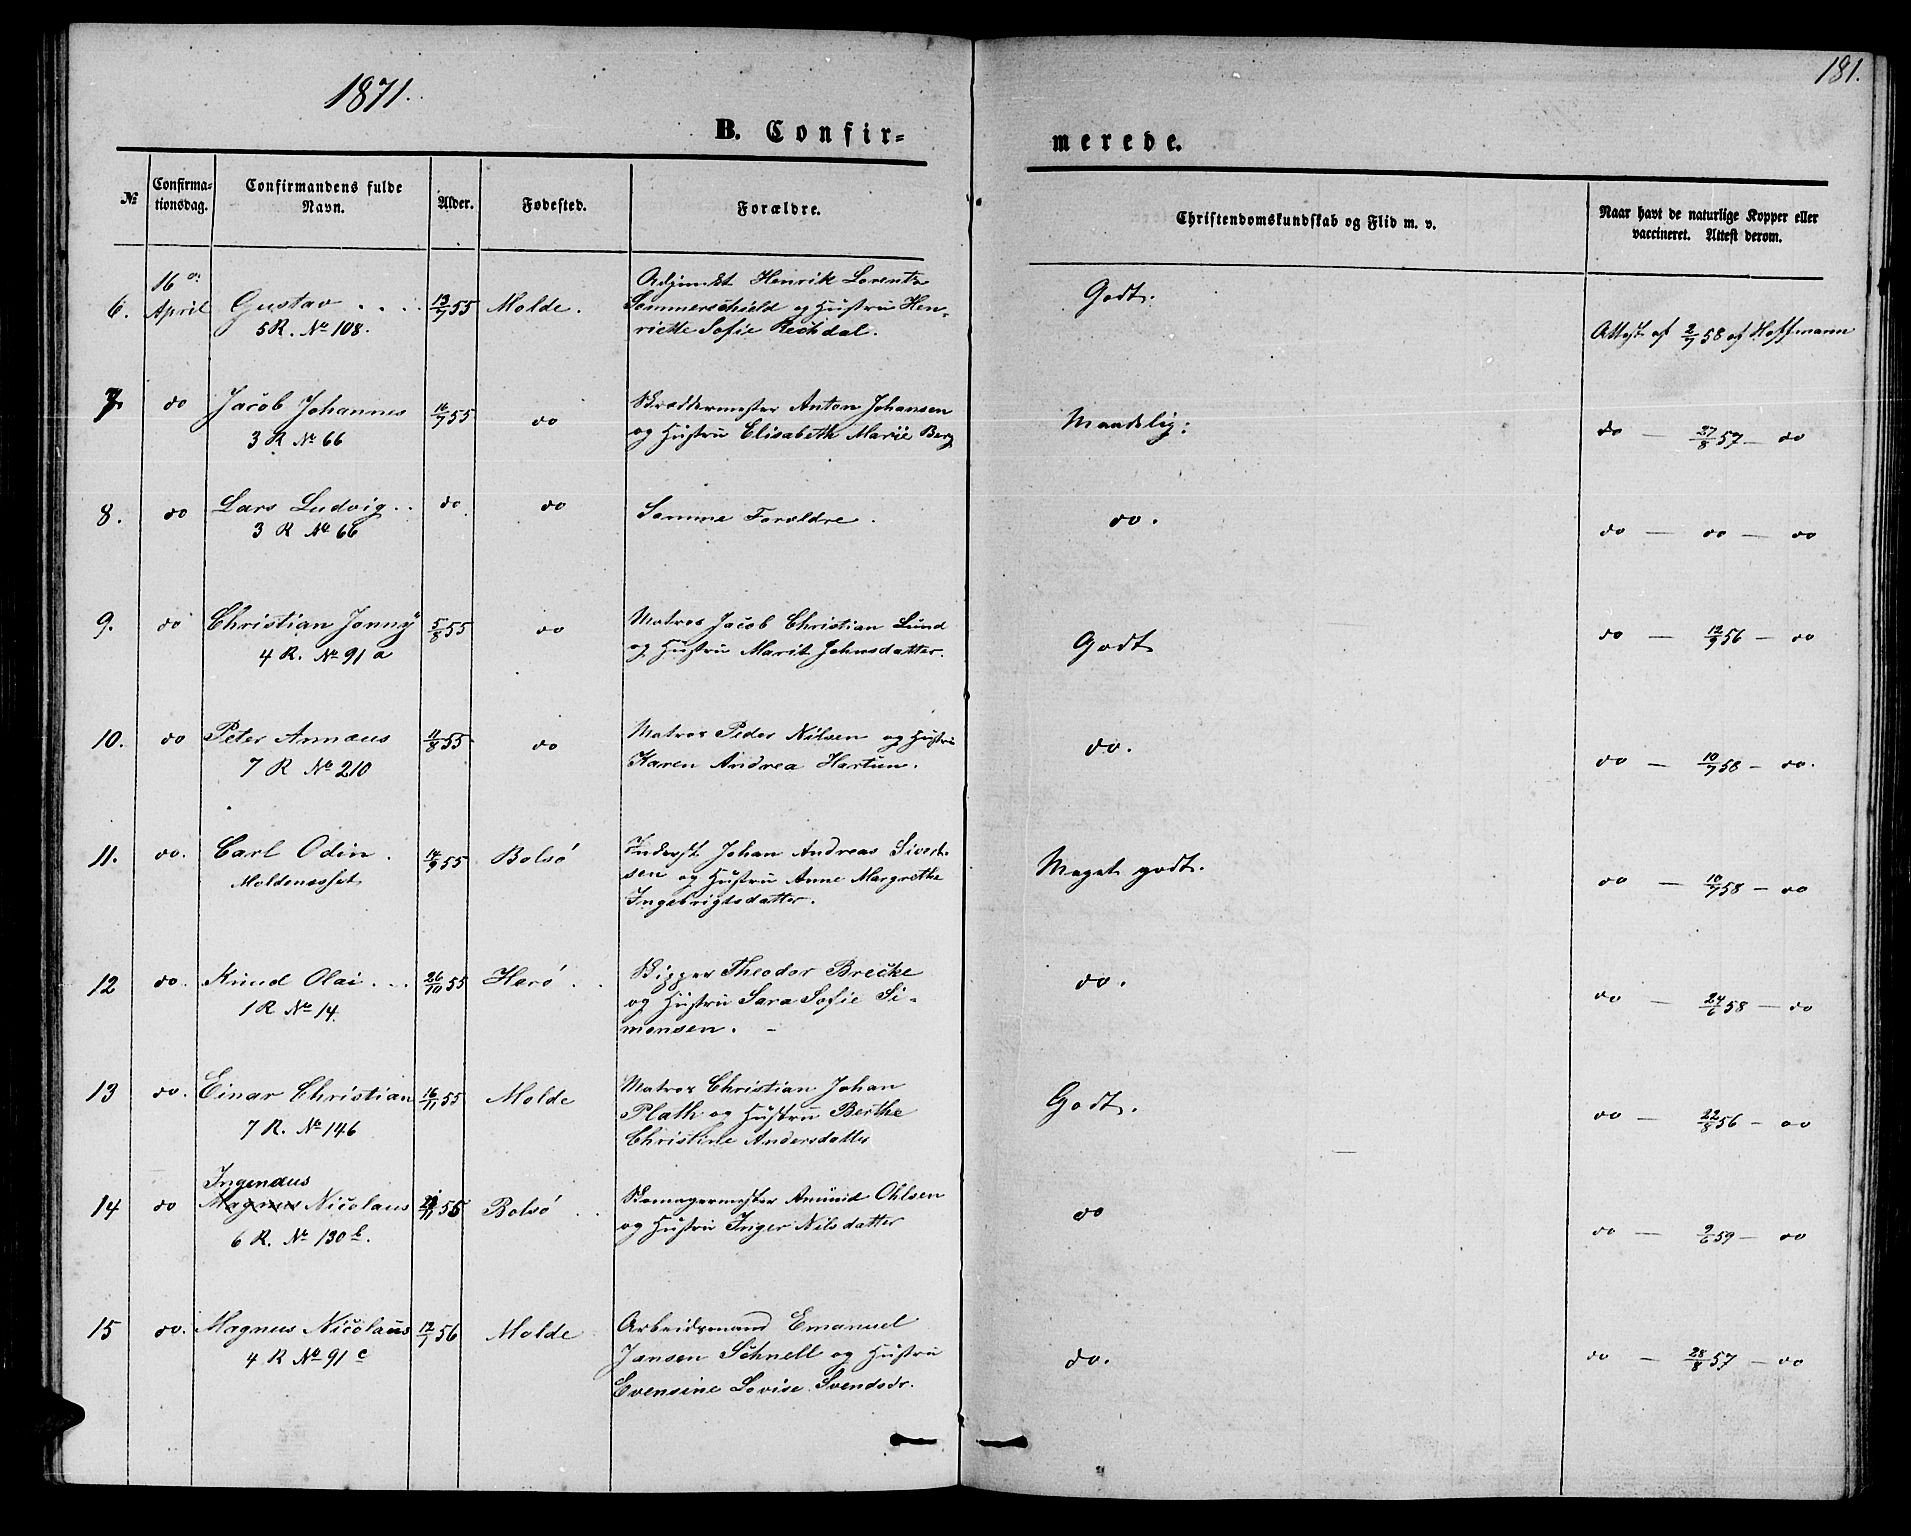 1871.
181.
B. Confir=
merede.
№
Confirma-
tionsdag.
Confirmandens fulde
Navn.
Alder.
Fødested.
Forældre.
Christendomskundskab og Flid m. v.
Naar havt de naturlige Kopper eller
vaccineret. Attest derom.
6.
16de
April
Gustav . . . .
5 R. No 108.
13/7 55
Molde.
Adjunkt Henrik Lorentz
Sommerschield og Hustru Hen-
riette Sofie Rechdal.
Godt.
Attest af 2/7 58 af Hoffmann
7.
do
Jacob Johannes
3 R No 66
16/7 55
do
Skræddermester Anton Johansen
og Hustru Elisabeth Marie Berg
Maadelig:
do — 27/8 57 — do
8.
do
Lars Ludvig . .
3 R No 66
do
do
Samme Forældre.
do.
do — do — do
9.
do
Christian Jonny
4 R. No 91 a
5/8 55
do
Matros Jacob Christian Lund
og Hustru Marit Johnsdatter.
Godt
do — 12/9 56 — do
10.
do
Peter Annæus
7 R No 210
11/8 55
do
Matros Peder Nilsen og Hustru
Karen Andrea Hartun.
do.
do — 10/7 58 — do.
11.
do.
Carl Odin.
Moldenæsset
14/9 55
Bolsø
Inderst Johan Andreas Sivert-
sen og Hustru Anne Margrethe
Ingebrigtsdatter.
Meget godt.
do — 10/7 58 — do
12
do.
Knud Olai . . .
1 R No 14.
26/10 55
Herø . .
Skipper Theodor Brecke
og Hustru Sara Sofie Si-
monsen. —
do.
do — 24/6 58 — do
13
do.
Einar Christian
7 R. No 146
16/11 55
Molde
Matros Christian Johan
Plath og Hustru Berthe
Christine Andersdatter
Godt.
do — 22/8 56 — do
14
do
Ingendus
Magnus Nicolaus
6 R. No 130 b.
/11 55
Bolsø . .
Skomagermester Amund Ohlsen
og Hustru Inger Nilsdatter
do
do — 9/6 59 — do
15
do.
Magnus Nicolaus
4 R No 91 c
12/1 56
Molde
Arbeidsmand Emanuel
Jansen Schnell og Hustru
Evensine Lovise Svendsdr.
do.
do — 28/8 57 — do